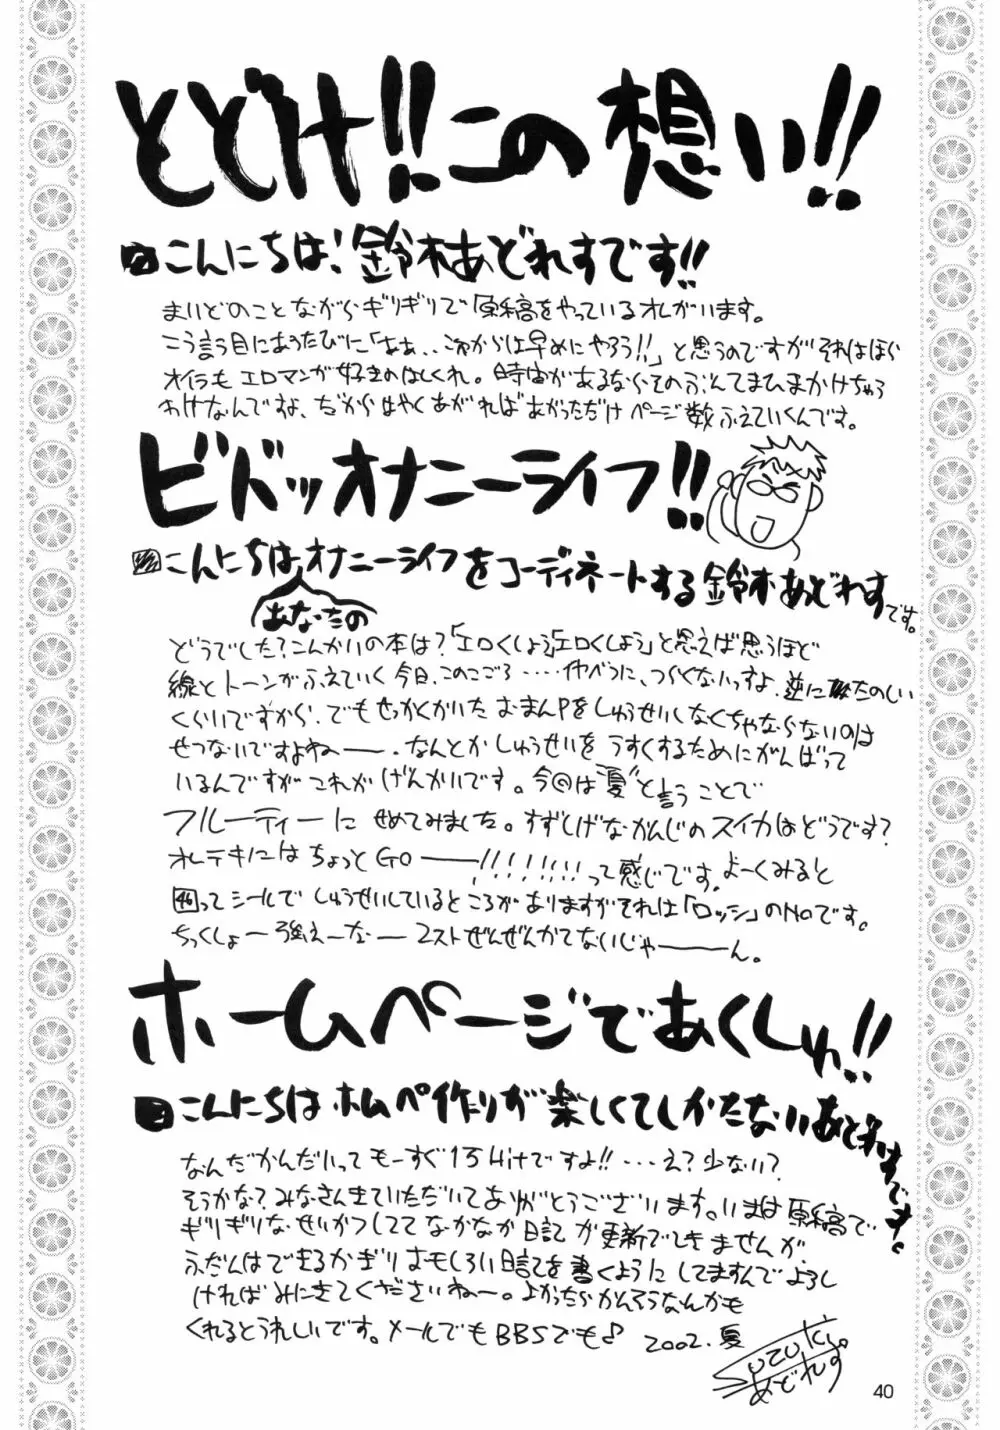 とどけ!!この想い!!
こんにちは!鈴木あどれすです!!
まいどのことながらギリギリで原稿をやっているオレがいます。
こう言う目にあうたびに「ああ・・これからは早めにやろう!!」と思うのですがそれはほら
オイラもエロマンガ好きのはしくれ。時間があるならそのぶんてまひまかけちゃう
わけなんですよ、だからはやくあがればあがっただけページ数ふえていくんです。
ビバッオナニーライフ!!
こんにちはオナニーライフをコーディネートする鈴木あどれすです。
あなたの
どうでした?こんかいの本は?「エロくしよう」「エロくしよう」と思えば思うほど
線とトーンがふえていく今日、このごろ・・・・べつに、つらくないっすよ、逆にたのしい
くらいですから、でもせっかくかいたおまんPをしゅうせいしなくちゃならないのは
せつないですよねー。なんとかしゅうせいをうすくするためにがんばって
いるんですがこれがげんかいです。今回は"夏"と言うことで
フルーティーにせめてみました。すずしげなかんじのスイカはどうです?
オレテキにはちょっとGOー!!!!!!!って感じです。よーくみると
46ってシールでしゅうせいしているところがありますがそれは「ロッシ」のNoです。
ちっくしょー強えーなーストぜんぜんかてないじゃーん。
ホームページであくしゅ!!
こんにちはホムペ作りが楽しくてしかたないあどれすです。
なんだかんだいってもーすぐ1万Hitですよ!!・・・え?少ない?
そうかな?みなさんきていただいてありがとうございます。いまは原稿で
ギリギリなせいかつしててなかなか日記が更新できませんが、
ふだんはできるかぎりおもしろい日記を書くようにしてますんでよろし
ければみにきてくださいねー。よかったらかんそうなんかも
くれるとうれしいです。メールでもBBSでも♪ 2002.夏
Suzuki
あどれす
40